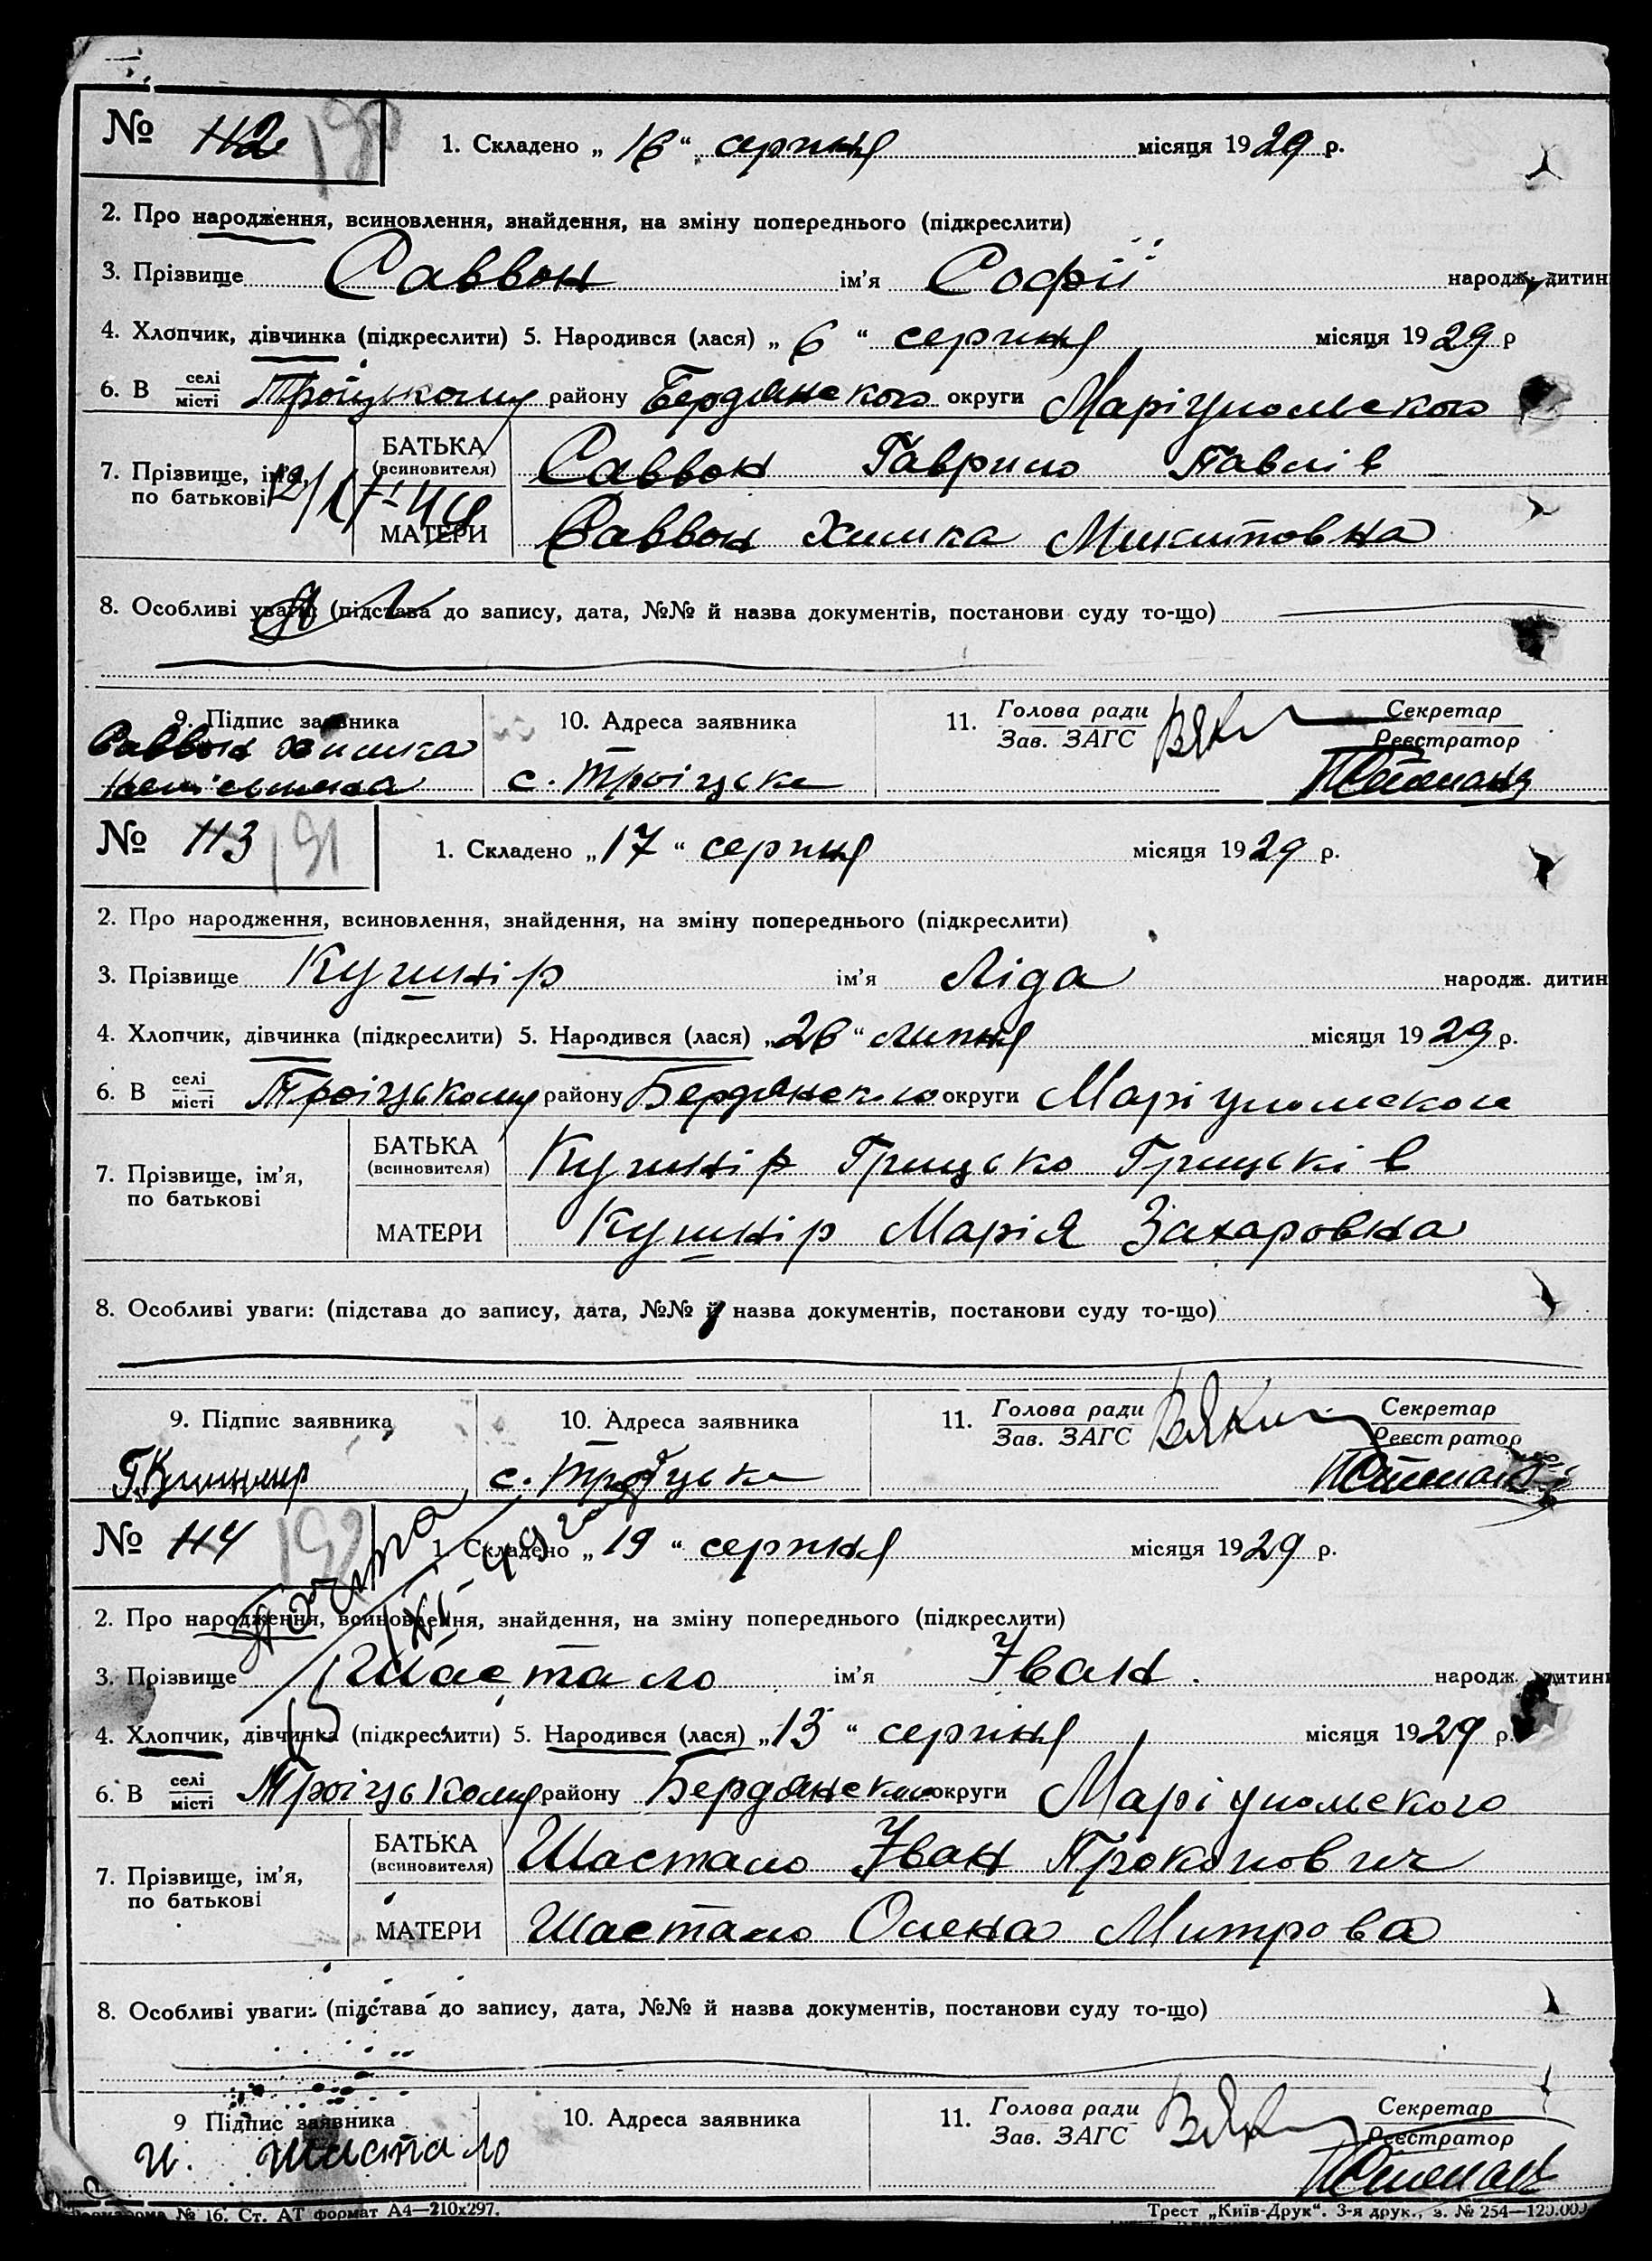 № 112 190 1. Складено „ 16 “ серпня місяця 1929 р.
2. Про народження, всиновлення, знайдення, на зміну попереднього (підкреслити)
3. Прізвище Саввон ім’я Софії народж. дитин
4. Хлопчик, дівчинка (підкреслити) 5. Народився (лася) „ 6 “ серпня місяця 1929 р
6. В селі місті Троїцькому району Бердянского округи Маріупольского
7. Прізвище, ім’я, по батькові БАТЬКА (всиновителя) Саввон Гаврило Павлів
МАТЕРИ Саввон Химка Микитовна
8. Особливі уваги: (підстава до запису, дата, №№ й назва документів, постанови суду то-що)
9. Підпис заявника 10. Адреса заявника 11. Голова ради Зав. ЗАГС Секретар Реєстратор
Саввон Химка
с. Троіцьке
№ 113 191 1. Складено „ 17 “ серпня місяця 1929 р.
2. Про народження, всиновлення, знайдення, на зміну попереднього (підкреслити)
3. Прізвище Кушнір ім’я Ліда народж. дитин
4. Хлопчик, дівчинка (підкреслити) 5. Народився (лася) „ 26 “ липня місяця 1929 р.
6. В селі місті Троіцькому району Бердянского округи Маріупольского
7. Прізвище, ім’я, по батькові БАТЬКА (всиновителя) Кушнір Грицько Грицьків
МАТЕРИ Кушнір Марія Захаровна
8. Особливі уваги: (підстава до запису, дата, №№ й назва документів, постанови суду то-що)
9. Підпис заявника 10. Адреса заявника 11. Голова ради Зав. ЗАГС Секретар Реєстратор
Г. Кушнир с. Троіцьке
№ 114 192 1. Складено „ 19 “ серпня місяця 1929 р.
2. Про народження, всиновлення, знайдення, на зміну попереднього (підкреслити)
3. Прізвище Шастало ім’я Іван народж. дитин
4. Хлопчик, дівчинка (підкреслити) 5. Народився (лася) „ 13 “ серпня місяця 1929 р.
6. В селі місті Троіцькому району Бердянского округи Маріупольского
7. Прізвище, ім’я, по батькові БАТЬКА (всиновителя) Шастало Іван Прокопович
МАТЕРИ Шастало Олена Митрова
8. Особливі уваги: (підстава до запису, дата, №№ й назва документів, постанови суду то-що)
9 Підпис заявника 10. Адреса заявника 11. Голова ради Зав. ЗАГС Секретар Реєстратор
И. Шастало
№ 16. Ст. АТ формат А4—210х297. Трест „Київ-Друк“. 3-я друк., з. № 254—120.000